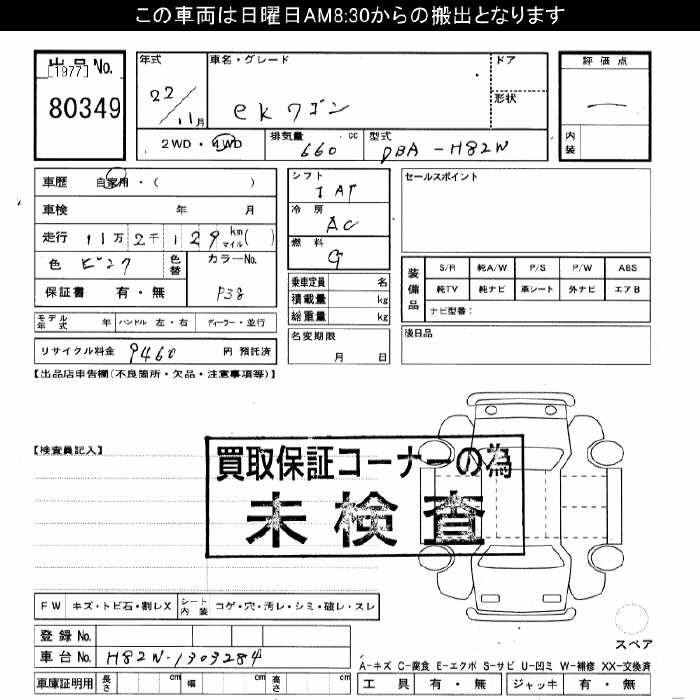 この車両は日曜日AM8:30からの搬出となります
出品No.
[1977]
80349
年式 22/11月
車名・グレード ekワゴン
ドア
形状
評価点
内装
2WD・4WD 排気量 660 cc 型式 DBA-H82W
車歴 自家用・( )
車検 年 月
走行 11万2千129 km マイル( )
色 ピンク 色替 カラーNo. P38
保証書 有・無
シフト IAT
冷房 AC
燃料 G
乗車定員 名
積載量 kg
総重量 kg
名変期限
月 日
セールスポイント
装備品
S/R 純A/W P/S P/W ABS
純TV 純ナビ 革シート 外ナビ エアB
ナビ型番:
後日品
モデル年式 年 ハンドル 左・右 ディーラー・並行
リサイクル料金 9460 円 預託済
【出品店申告欄(不良箇所・欠品・注意事項等)】
【検査員記入】
買取保証コーナーの為
未検査
FW キズ・トビ石・割レX シート内装 コゲ・穴・汚レ・シミ・破レ・スレ
スペア
登録No.
車台No. H82W-1303284
車庫証明用 長さ cm 幅 cm 高さ cm
A-キズ C-腐食 E-エクボ S-サビ U-凹ミ W-補修 XX-交換済
工具 有・無 ジャッキ 有・無